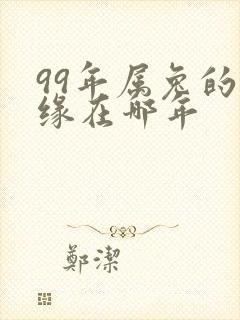 99年属兔的
缘在哪年
鄭潔